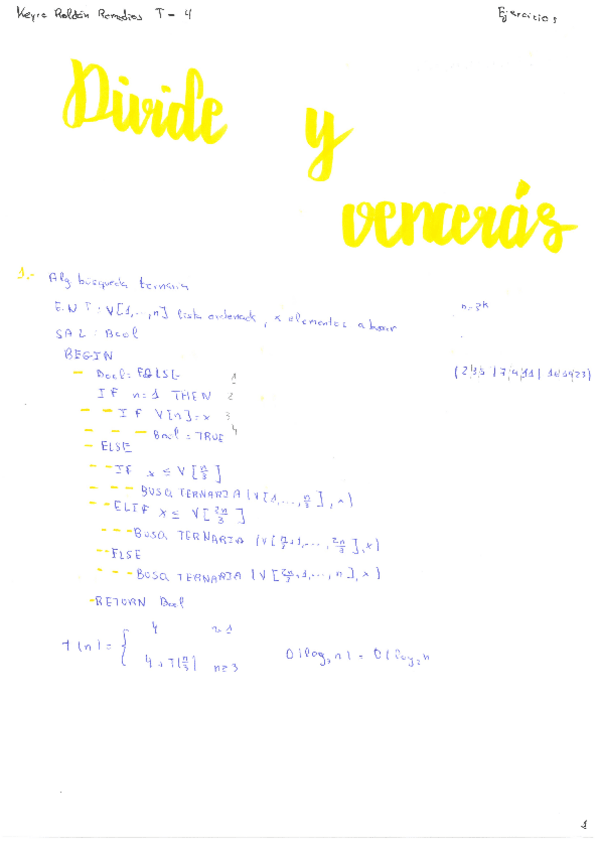 Keyra Roldán Remedios T-4 Ejercicios
Divide y
vencerás
1.- Alg búsqueda ternaria
ENT: V[1,..,n] lista ordenada, x elementos a buscar n=3^k
SAL: Bool
BEGIN
- Bool= FALSE 1
IF n=1 THEN 2
- - IF V[n]=x 3
- - - Bool = TRUE 4
- ELSE
- - IF x ≤ V[n/3]
- - - BUSQ TERNARIA (V[1,...,n/3], x)
- - ELIF x ≤ V[2n/3]
- - - BUSQ TERNARIA (V[n/3+1,...,2n/3],x)
- - ELSE
- - - BUSQ TERNARIA (V[2n/3+1,...,n],x)
- RETURN Bool
T(n) = { 4 n=1
4+T(n/3) n≥3 O(log₃ n) = O(log₂ n
1